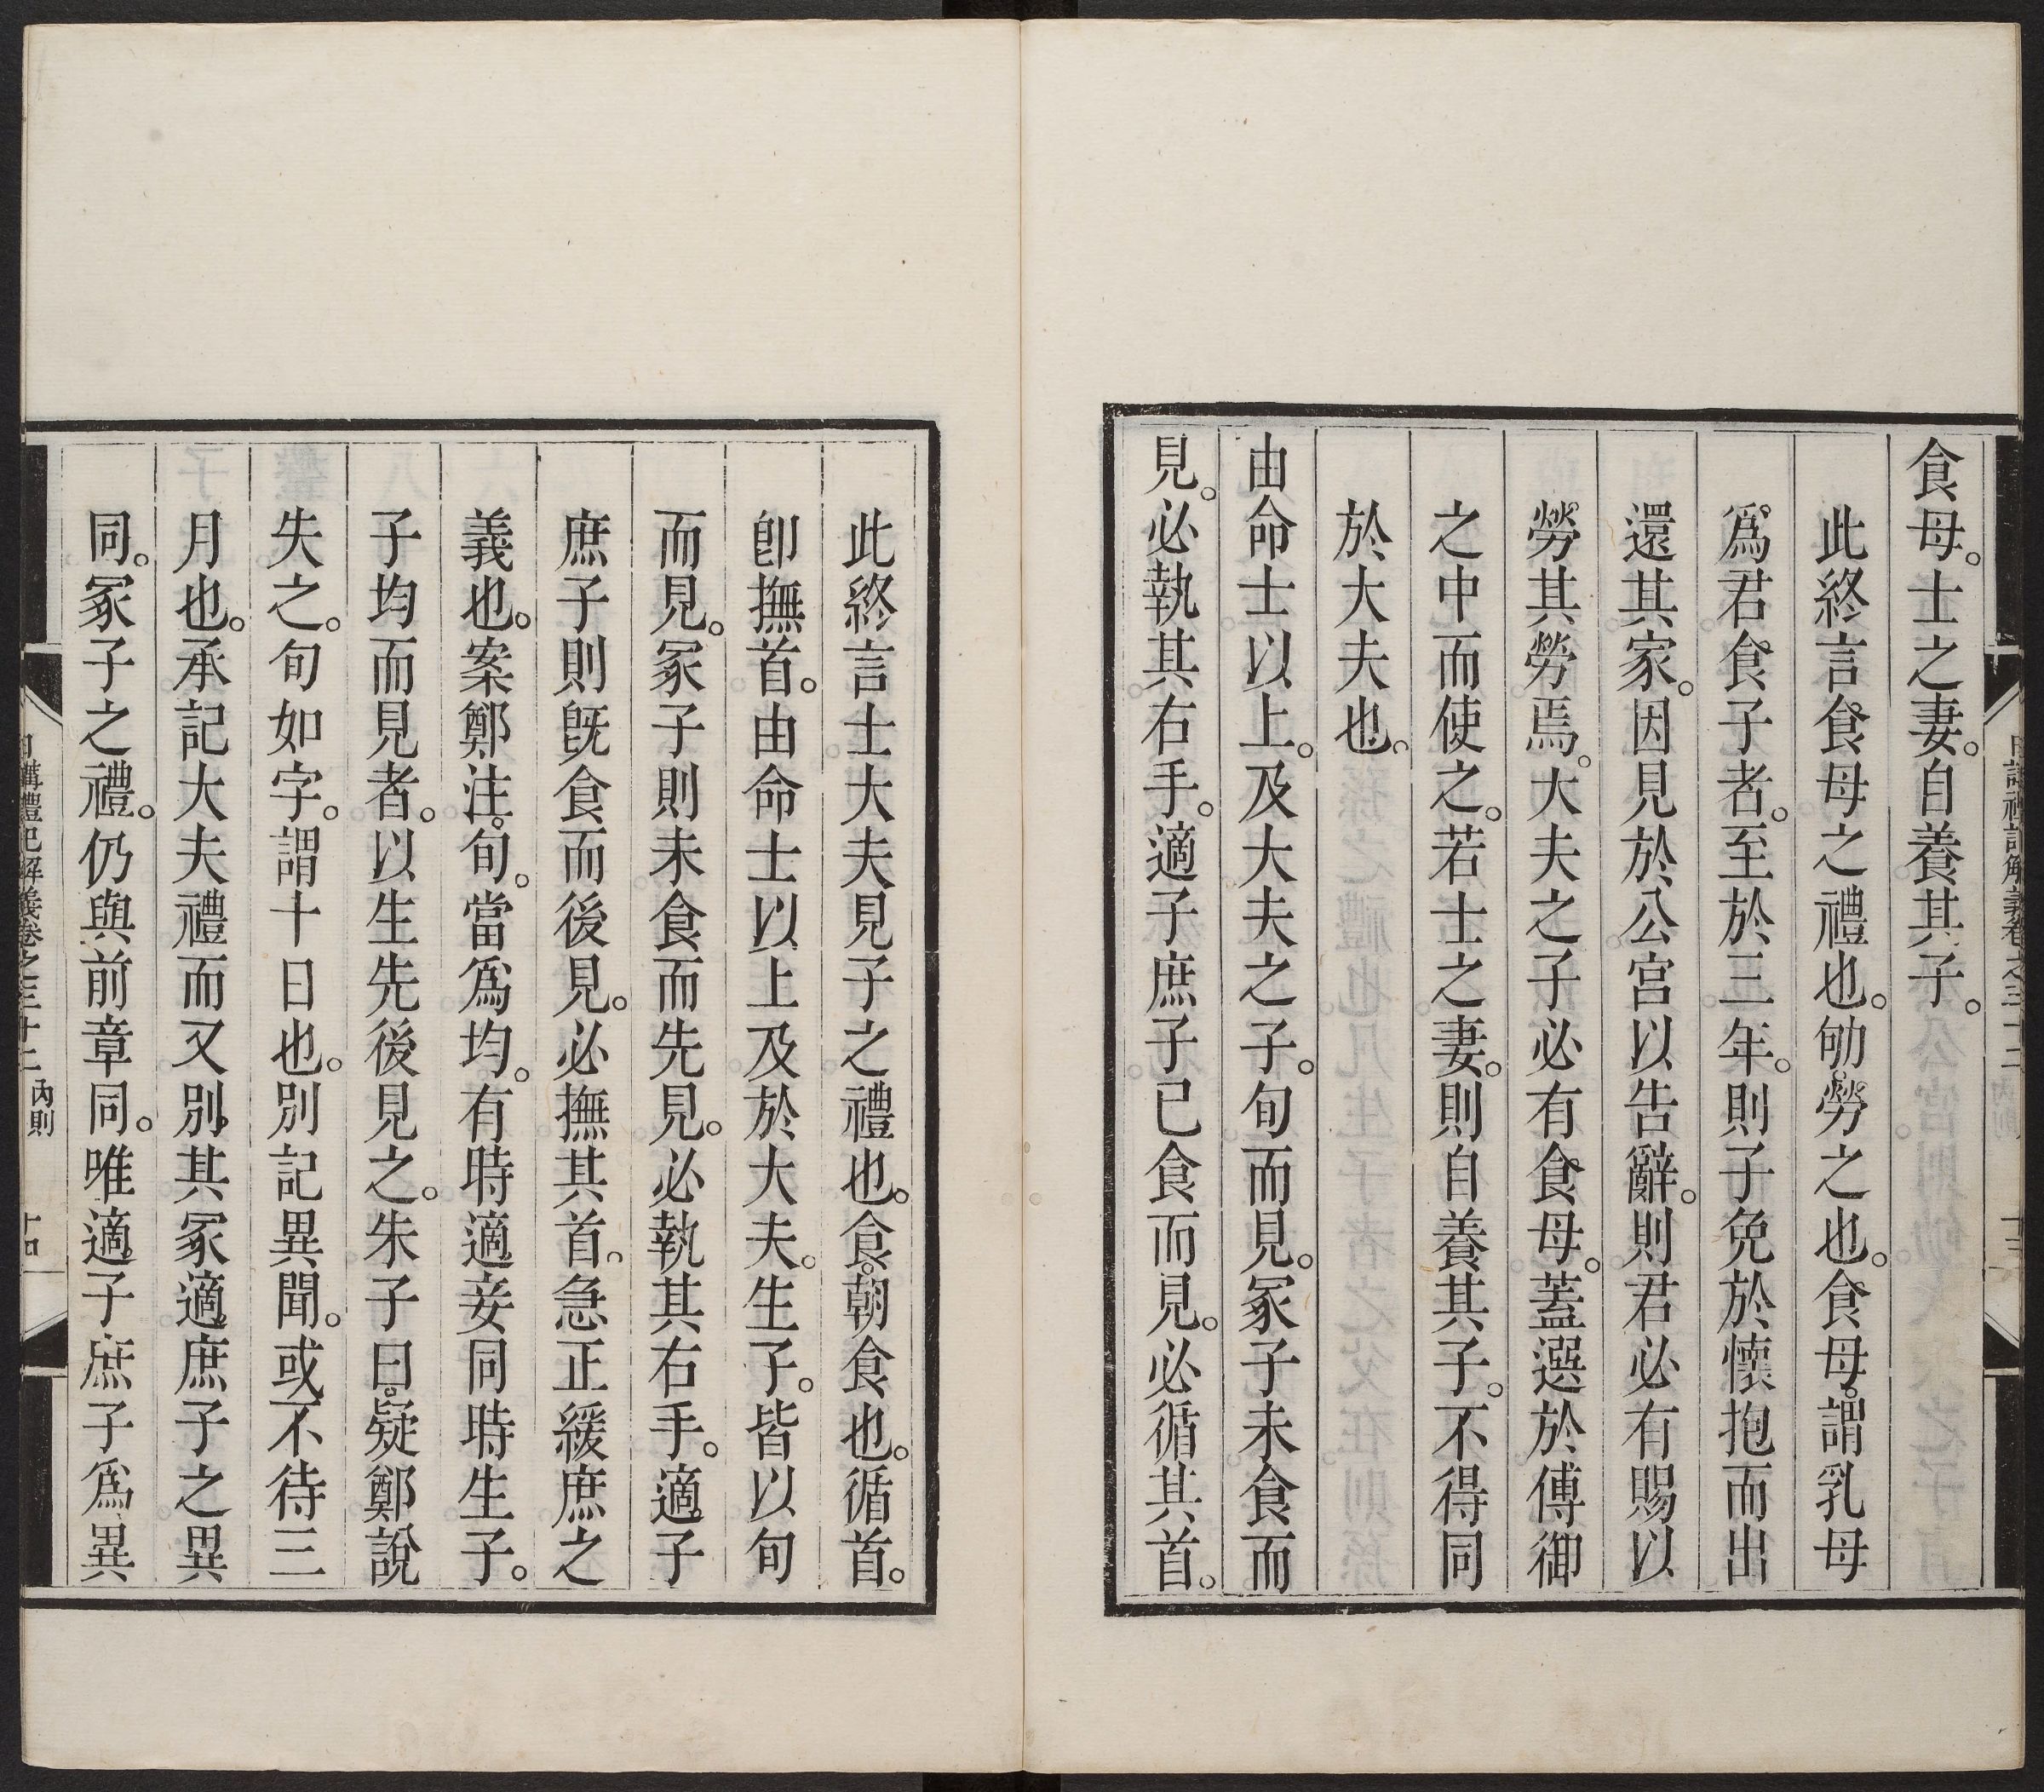 食母。士之妻。自養其子。
此終言食母之禮也。劬勞之也。食母。謂乳母
爲君食子者。至於三年。則子免於懷抱而出
還其家。因見於公宮以告辭。則君必有賜以
勞其勞焉。大夫之子必有食母。蓋選於傅御
之中而使之。若士之妻。則自養其子。不得同
於大夫也。
由命士以上。及大夫之子。旬而見。冢子未食而
見。必執其右手。適子庶子已食而見。必循其首。
此終言士大夫見子之禮也。食。朝食也。循首。
卽撫首。由命士以上及於大夫。生子。皆以旬
而見。冢子則未食而先見。必執其右手。適子
庶子則旣食而後見。必撫其首。急正緩庶之
義也。案鄭注。旬。當爲均。有時適妾同時生子。
子均而見者。以生先後見之。朱子曰。疑鄭說
失之。旬如字。謂十日也。別記異聞。或不待三
月也。承記大夫禮而又別其冢適庶子之異
同。冢子之禮。仍與前章同。唯適子庶子爲異
日講禮記解義卷之三十二 內則 十四